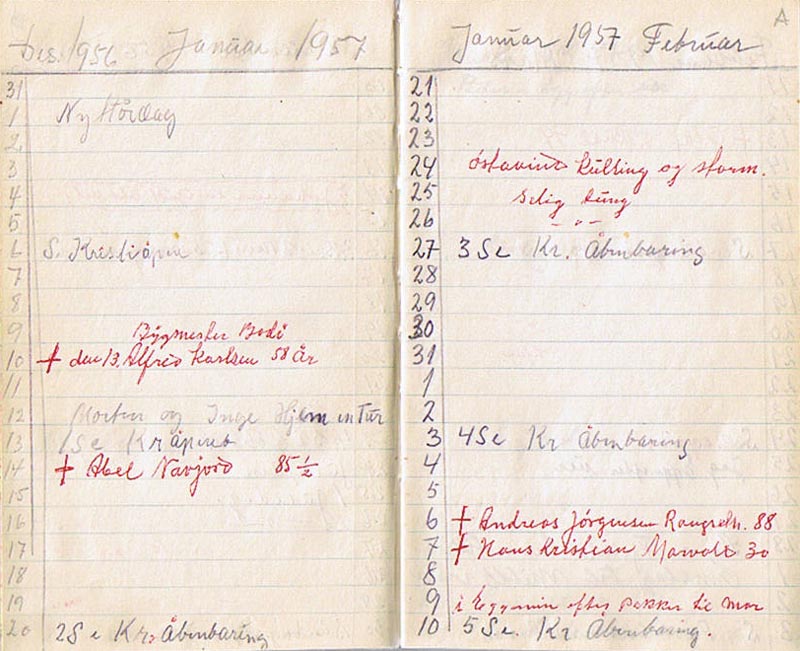 Des. 1956 Januar 1957
31
1 Nyttårdag
2
3
4
5
6 S. Krestiåpen
7
8
9 Bygmester Bodö
10 † den 13. Alfred Karlsen 58 år
11
12 Morten og Inge Hjem en Tur
13 1 Se Kr åpenb
14 † Abel Navjord 85 1/2
15
16
17
18
19
20 2 S e Kr. Åbenbaring
Januar 1957 Februar A
21
22
23
24 östavind Kulling og storm.
25 Selig tung
26 - " -
27 3 Se Kr. Åbenbaring
28
29
30
31
1
2
3 4 Se Kr Åbenbaring
4
5
6 † Andreas Jörgensen 88
7 † Hans Kristian 30
8
9 i efter Pakker til mor
10 5 Se. Kr Åbenbaring.